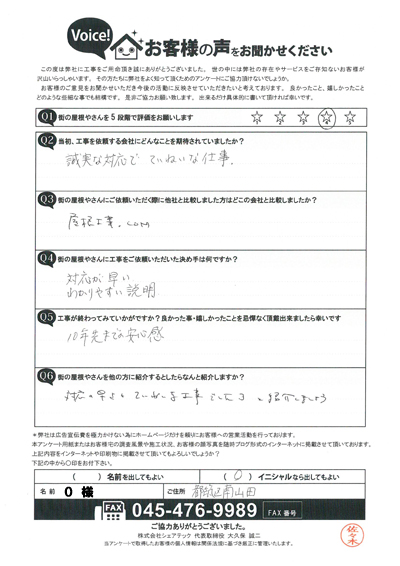 Voice!
お客様の声をお聞かせください
この度は弊社に工事をご用命頂き誠にありがとうございました。世の中には弊社の存在やサービスをご存知ないお客様が
沢山いらっしゃいます。その方たちに弊社をよく知って頂くためのアンケートにご協力頂けないでしょうか。
お客様のご意見をお聞かせいただき今後の活動に反映させていただきたいと考えております。良かったこと、嬉しかったこと
どのような些細な事でも結構です。是非ご協力お願い致します。出来るだけ具体的に書いて頂ければ幸いです。
Q1 街の屋根やさんを5段階で評価をお願いします
Q2 当初、工事を依頼する会社にどんなことを期待されていましたか?
誠実な対応で ていねいな仕事.
Q3 街の屋根やさんにご依頼いただく際に他社と比較しました方はどこの会社と比較しましたか?
屋根工事.com
Q4 街の屋根やさんに工事をご依頼いただいた決め手は何ですか?
対応が早い
わかりやすい説明
Q5 工事が終わってみていかがですか?良かった事・嬉しかったことを忌憚なく頂戴出来ましたら幸いです
10年先までの安心感
Q6 街の屋根やさんを他の方に紹介するとしたらなんと紹介しますか?
対応の早さと ていねいな工事
*弊社は広告宣伝費を極力かけない為にホームページだけを頼りにお客様への営業活動を行っております。
本アンケート用紙またはお客様宅の調査風景や施工状況、お客様の顔写真を随時ブログ形式のインターネットに掲載させて頂いております。
上記内容をインターネットや印刷物に掲載させて頂いてもよろしいでしょうか?
下記の中から〇印をお付下さい。
( )名前を出してもよい ( 〇 )イニシャルなら出してもよい
名前 O 様 ご住所 都筑区南山田
FAX 045-476-9989 FAX番号
ご協力ありがとうございました。
株式会社シェアテック 代表取締役 大久保 誠二
当アンケートで取得したお客様の個人情報は関係法規に基づき厳正に管理いたします。
佐々木